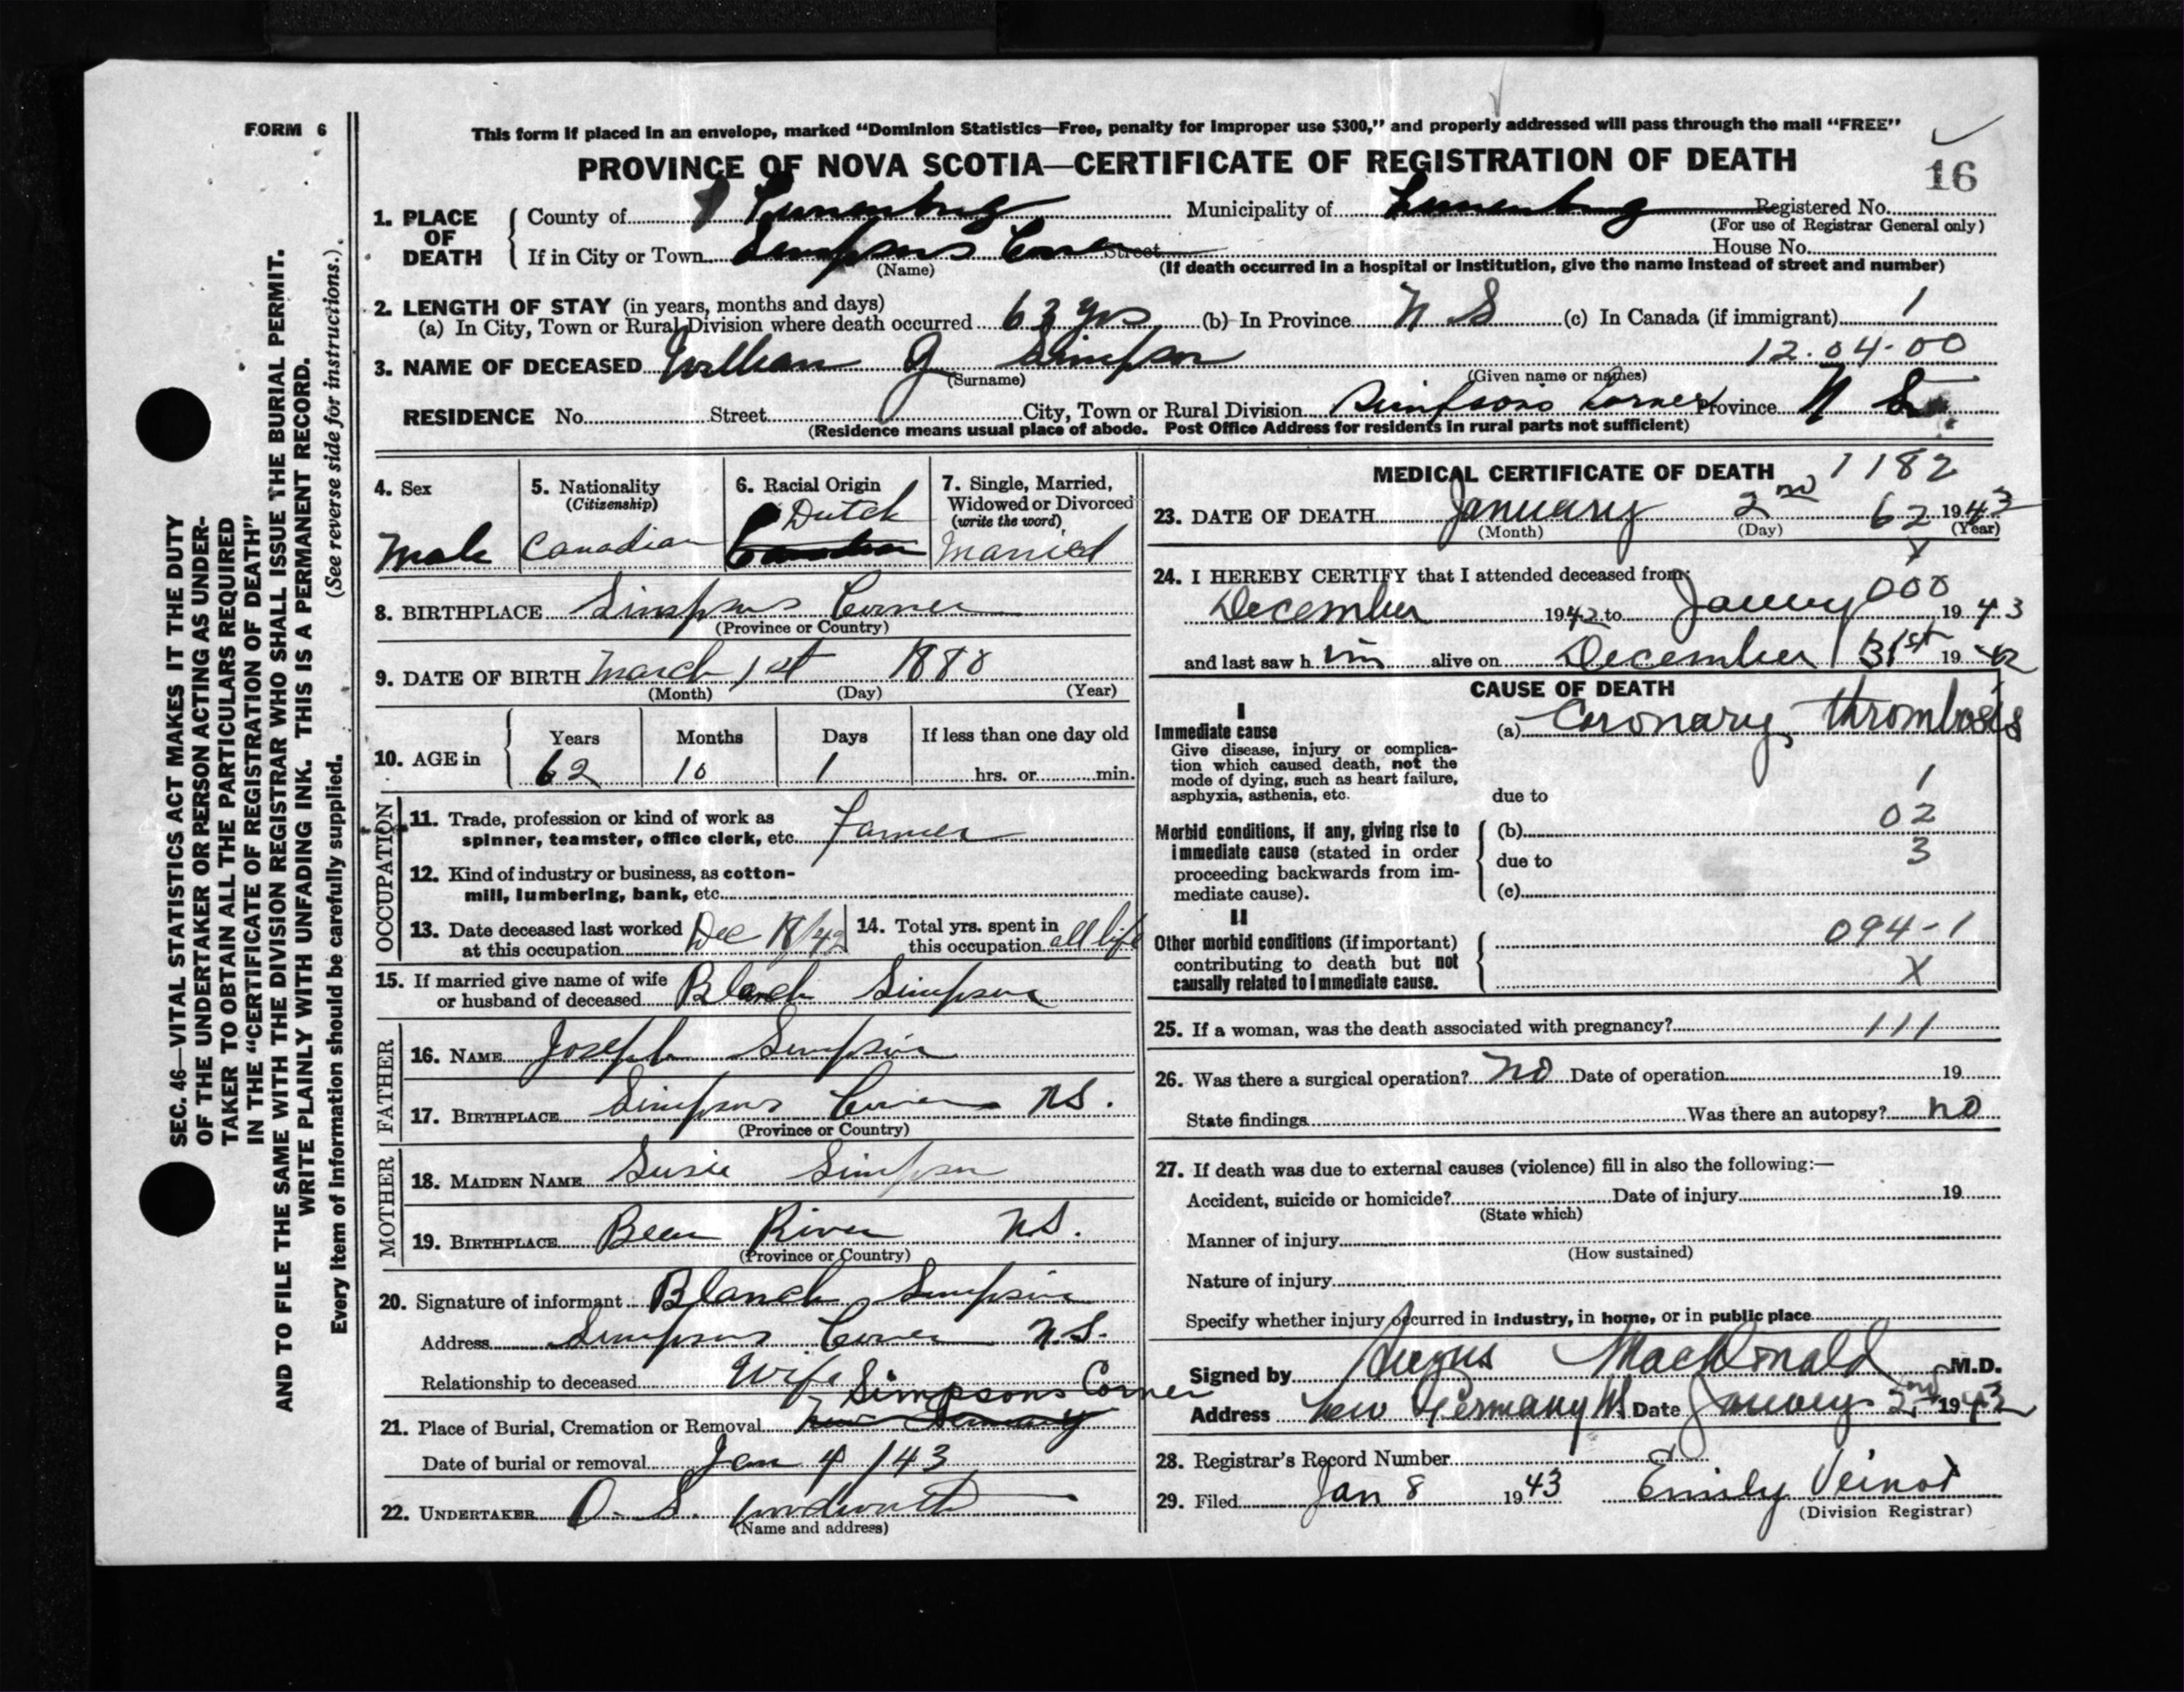 FORM 6
This form if placed in an envelope, marked “Dominion Statistics—Free, penalty for improper use $300,” and properly addressed will pass through the mail “FREE”
PROVINCE OF NOVA SCOTIA—CERTIFICATE OF REGISTRATION OF DEATH
16
1. PLACE OF DEATH
County of Lunenburg Municipality of Lunenburg Registered No.
(For use of Registrar General only)
If in City or Town Simpsons Corner Street House No.
(Name) (If death occurred in a hospital or institution, give the name instead of street and number)
2. LENGTH OF STAY (in years, months and days)
(a) In City, Town or Rural Division where death occurred 63 yrs (b) In Province N S (c) In Canada (if immigrant) 1
3. NAME OF DECEASED William J Simpson 12.04.00
(Surname) (Given name or names)
RESIDENCE No. Street City, Town or Rural Division Simpsons Corner Province N S
(Residence means usual place of abode. Post Office Address for residents in rural parts not sufficient)
4. Sex
Male
5. Nationality
(Citizenship)
Canadian
6. Racial Origin
Dutch
Canadian
7. Single, Married,
Widowed or Divorced
(write the word)
Married
8. BIRTHPLACE Simpsons Corner
(Province or Country)
9. DATE OF BIRTH March 1st 1880
(Month) (Day) (Year)
10. AGE in
Years Months Days If less than one day old
62 10 1 hrs. or min.
OCCUPATION
11. Trade, profession or kind of work as
spinner, teamster, office clerk, etc. Farmer
12. Kind of industry or business, as cotton-
mill, lumbering, bank, etc.
13. Date deceased last worked
at this occupation Dec 18/42
14. Total yrs. spent in
this occupation all life
15. If married give name of wife
or husband of deceased Blanch Simpson
FATHER
16. NAME Joseph Simpson
17. BIRTHPLACE Simpsons Corner NS.
(Province or Country)
MOTHER
18. MAIDEN NAME Susie Simpson
19. BIRTHPLACE Bear River NS.
(Province or Country)
20. Signature of informant Blanch Simpson
Address Simpsons Corner N.S.
Relationship to deceased Wife
Simpsons Corner
21. Place of Burial, Cremation or Removal New Germany
Date of burial or removal Jan 4/43
22. UNDERTAKER O. S. Woodworth
(Name and address)
MEDICAL CERTIFICATE OF DEATH 1182
23. DATE OF DEATH January 2nd 62 1943
(Month) (Day) (Year)
X
24. I HEREBY CERTIFY that I attended deceased from:
000
December 1942 to January 1943
and last saw him alive on December 31st 1942
CAUSE OF DEATH
I
Immediate cause
Give disease, injury or complica-
tion which caused death, not the
mode of dying, such as heart failure,
asphyxia, asthenia, etc.
(a) Coronary thrombosis
due to 1
Morbid conditions, if any, giving rise to
immediate cause (stated in order
proceeding backwards from im-
mediate cause).
(b) 02
due to 3
(c)
II
Other morbid conditions (if important)
contributing to death but not
causally related to immediate cause.
094-1
X
25. If a woman, was the death associated with pregnancy? 111
26. Was there a surgical operation? No Date of operation 19
State findings Was there an autopsy? no
27. If death was due to external causes (violence) fill in also the following:—
Accident, suicide or homicide? Date of injury 19
(State which)
Manner of injury
(How sustained)
Nature of injury
Specify whether injury occurred in industry, in home, or in public place
Signed by Angus MacDonald M.D.
Address New Germany NS Date January 2nd 1943
28. Registrar's Record Number
29. Filed Jan 8 1943 Emily Veinot
(Division Registrar)
SEC. 46—VITAL STATISTICS ACT MAKES IT THE DUTY
OF THE UNDERTAKER OR PERSON ACTING AS UNDER-
TAKER TO OBTAIN ALL THE PARTICULARS REQUIRED
IN THE “CERTIFICATE OF REGISTRATION OF DEATH”
AND TO FILE THE SAME WITH THE DIVISION REGISTRAR WHO SHALL ISSUE THE BURIAL PERMIT.
WRITE PLAINLY WITH UNFADING INK. THIS IS A PERMANENT RECORD.
Every item of information should be carefully supplied. (See reverse side for instructions.)